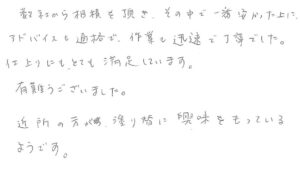 数社から相積を頂き、その中で一番安かった上に、
アドバイスも適格で、作業も迅速で丁寧でした。
仕上りにも、とても満足しています。
有難うございました。
近所の方が、塗り替に興味をもっている
ようです。